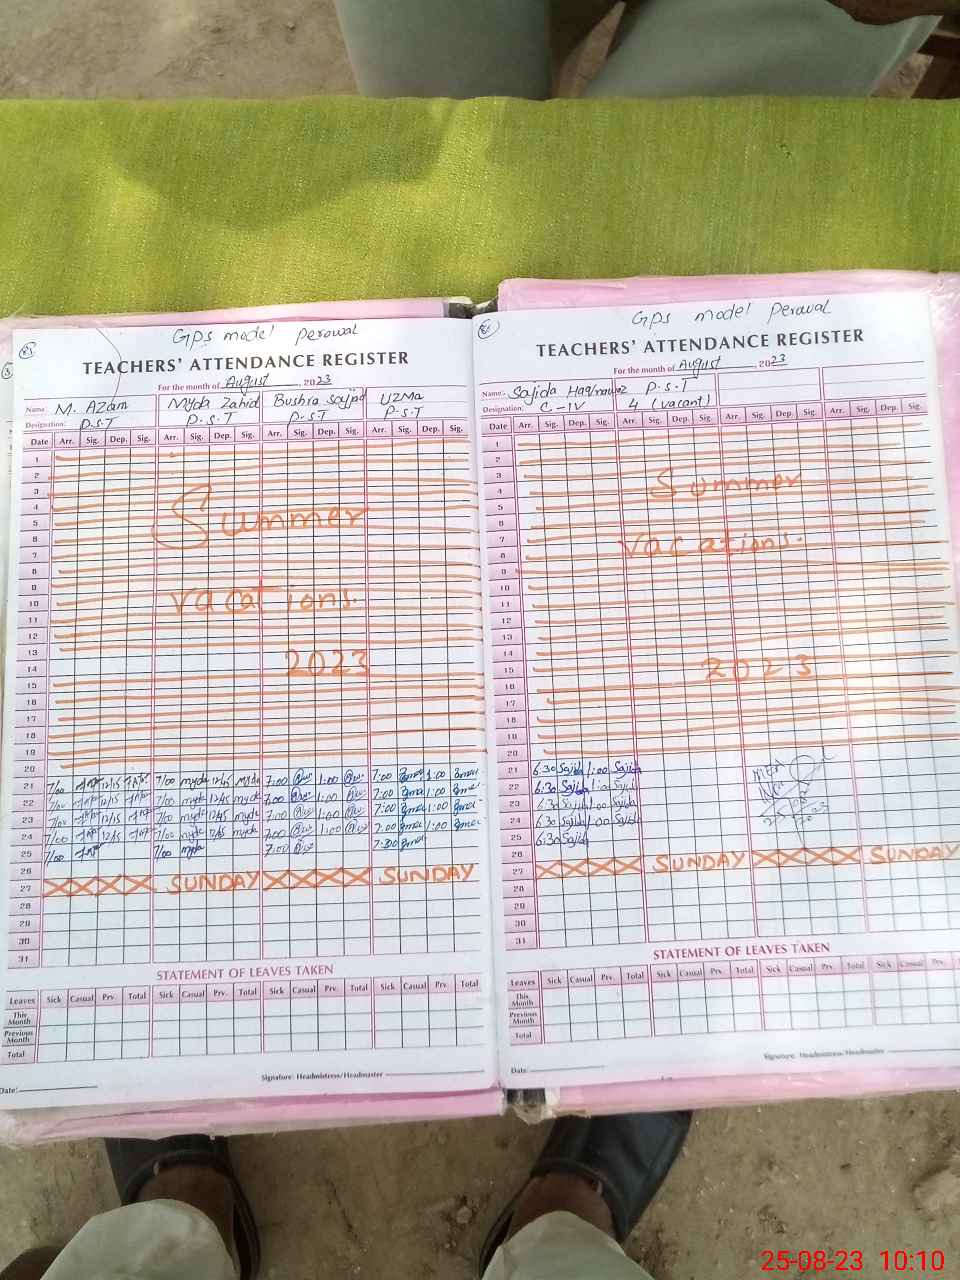 GPS model Perowal
TEACHERS' ATTENDANCE REGISTER
For the month of August, 2023
Name: M. Azam Myda Zahid Bushra Sajjad UZMa
Designation: P.S.T P.S.T P.S.T P.S.T
Date Arr. Sig. Dep. Sig. Arr. Sig. Dep. Sig. Arr. Sig. Dep. Sig. Arr. Sig. Dep. Sig.
1
2
3
4
5
6
7
8
9
10
11
12
13
14
15
16
17
18
19
20
Summer
vacations.
2023
21 7/00 12/15 7/00 myda 12/15 myda 7:00 1:00 7:00 1:00
22 7/00 12/15 7/00 myda 12/15 myda 7:00 1:00 7:00 1:00
23 7/00 12/15 7/00 myda 12/15 myda 7:00 1:00 7:00 1:00
24 7/00 12/15 7/00 myda 12/15 myda 7:00 1:00 7:00 1:00
25 7/00 7/00 myda 7:00 7:30
26
27 SUNDAY SUNDAY
28
29
30
31
STATEMENT OF LEAVES TAKEN
Leaves Sick Casual Prv. Total Sick Casual Prv. Total Sick Casual Prv. Total Sick Casual Prv. Total
This Month
Previous Month
Total
Signature: Headmistress/Headmaster
Date:
GPS model Perowal
TEACHERS' ATTENDANCE REGISTER
For the month of August, 2023
Name: Sajida Haqnawaz P.S.T
Designation: C-IV 4 (vacant)
Date Arr. Sig. Dep. Sig. Arr. Sig. Dep. Sig. Arr. Sig. Dep. Sig. Arr. Sig. Dep. Sig.
1
2
3
4
5
6
7
8
9
10
11
12
13
14
15
16
17
18
19
20
Summer
vacations.
2023
21 6:30 Sajida 1:00 Sajida
22 6:30 Sajida 1:00 Sajida
23 6:30 Sajida 1:00 Sajida
24 6:30 Sajida 1:00 Sajida
25 6:30 Sajida
26
27 SUNDAY SUNDAY
28
29
30
31
STATEMENT OF LEAVES TAKEN
Leaves Sick Casual Prv. Total Sick Casual Prv. Total Sick Casual Prv. Total Sick Casual Prv.
This Month
Previous Month
Total
Signature: Headmistress/Headmaster
Date:
25-08-23 10:10